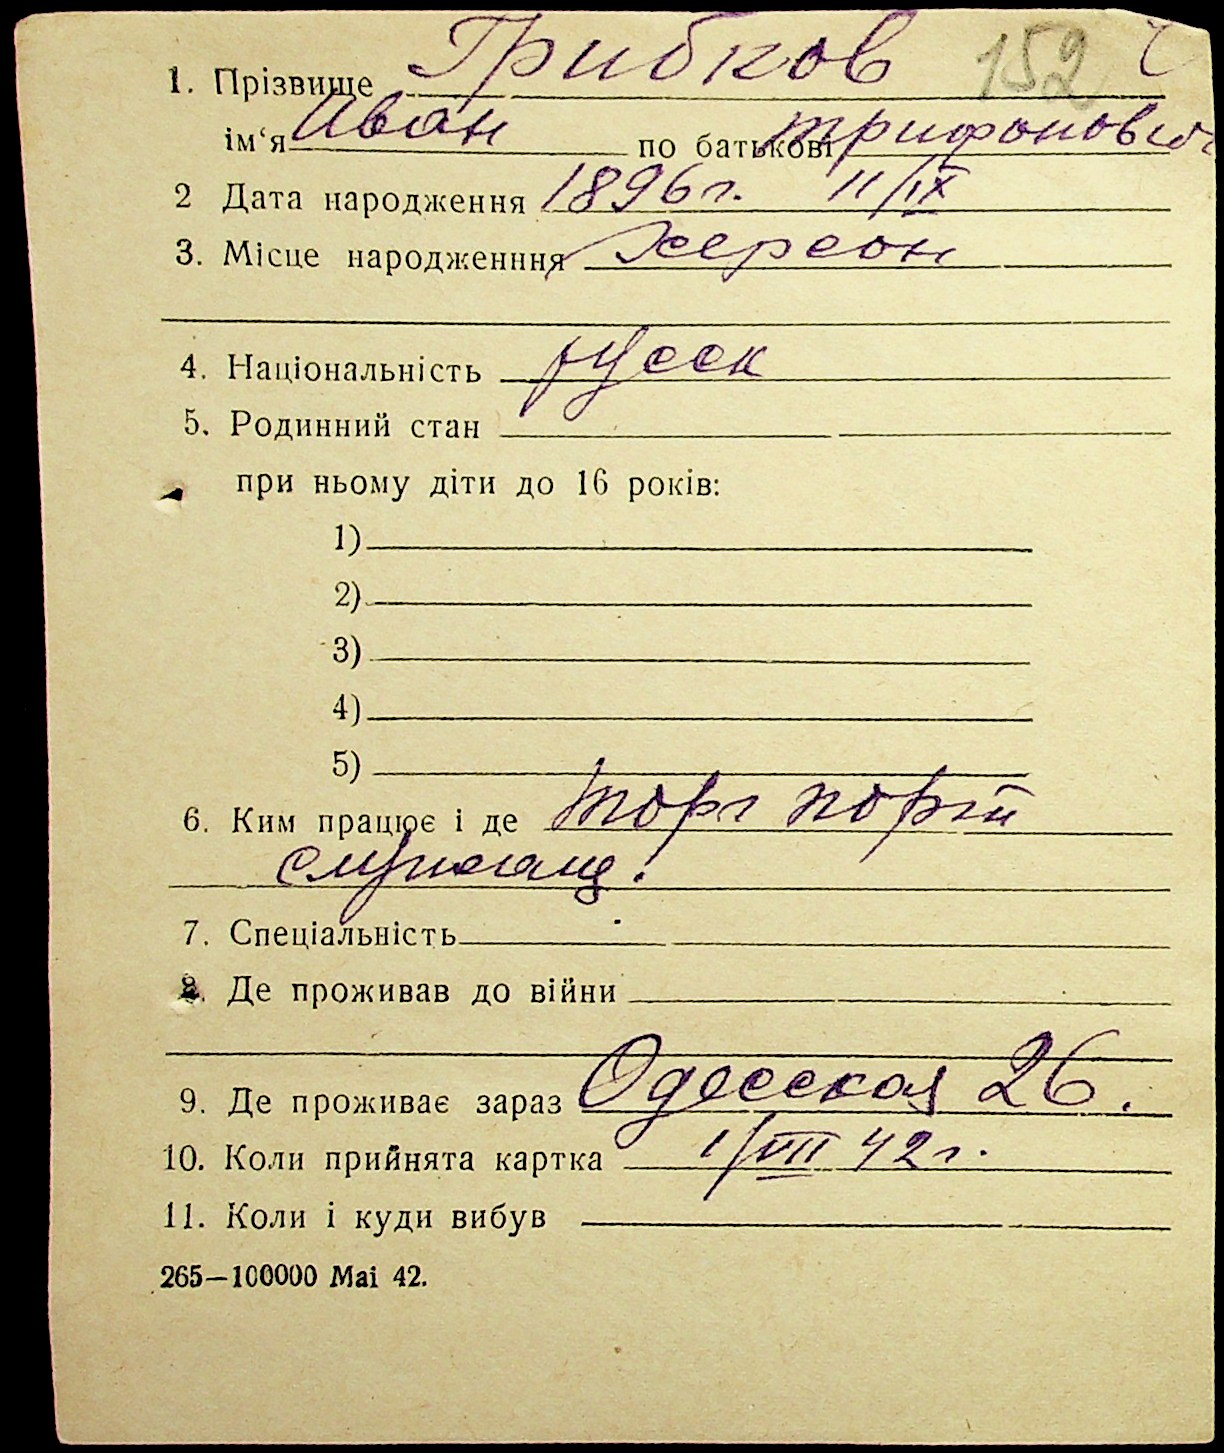 1. Прізвище Грибков 152
ім‘я Иван по батькові Трифонович
2 Дата народження 1896 г. 11/IX
3. Місце народженння Херсон
4. Національність русск
5. Родинний стан
при ньому діти до 16 років:
1)
2)
3)
4)
5)
6. Ким працює і де торг порт
служащ.
7. Спеціальність
8. Де проживав до війни
9. Де проживає зараз Одесская 26.
10. Коли прийнята картка 1/VII 42 г.
11. Коли і куди вибув
265—100000 Mai 42.